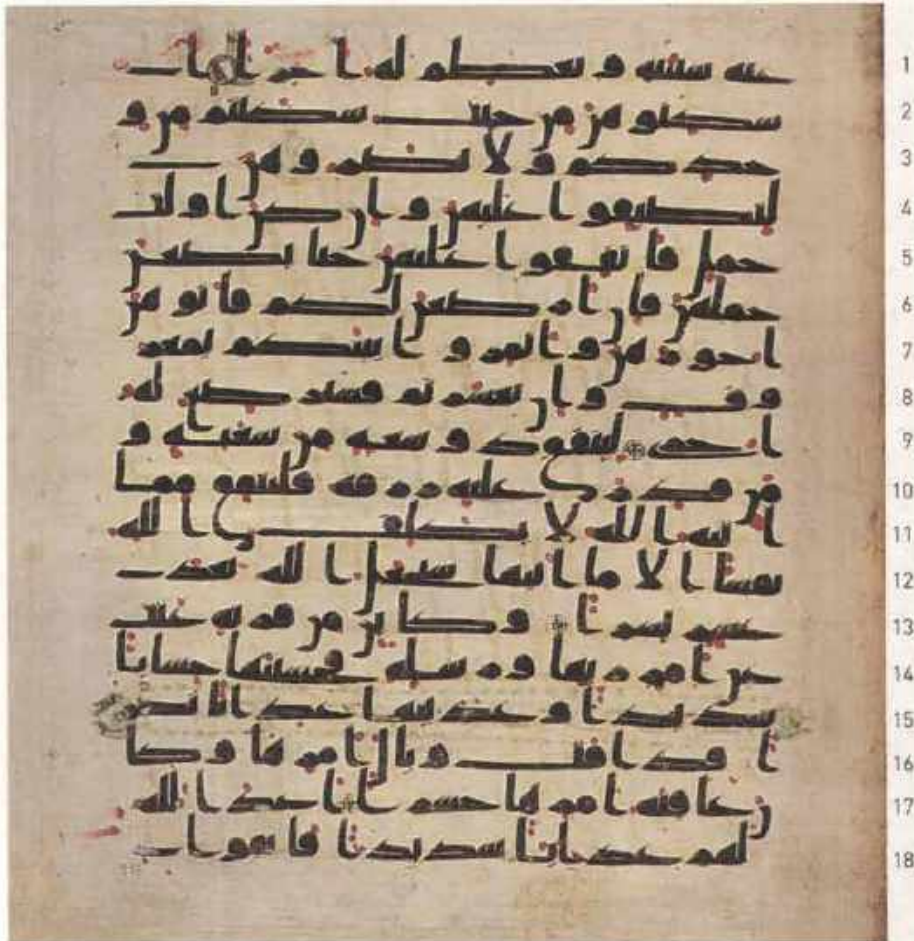 عنه سيته و يعظم له ا جر ا ا 1
سكنو هن من حيث سكنتم من و 2
جد كم و لا تضر و هن 3
لتضيقو ا عليهن و ا ن كن ا و لت 4
حمل فا نفقو ا عليهن حتى يضعن 5
حملهن فا ن ا ر ضعن لكم فا تو هن 6
ا جو ر هن و ا تمر و ا بينكم بمعر 7
و ف و ا ن تعسر تم فستر ضع له 8
ا خر ى لينفق ذ و سعة من سعته و 9
من قد ر عليه ر ز قه فلينفق مما 10
ا تيه ا لله لا يكلف ا لله 11
نفسا ا لا ما ا تيها سيجعل ا لله بعد 12
عسر يسر ا و كا ين من قر ية عتت 13
عن ا مر ر بها و ر سله فحسبنها حسابا 14
شد يد ا و عذ بنها عذ ا با نكر 15
ا فذ ا قت و با ل ا مر ها و كا 16
ن عقبة ا مر ها خسر ا ا عد ا لله 17
لهم عذ ا با شد يد ا فا تقو ا ا 18